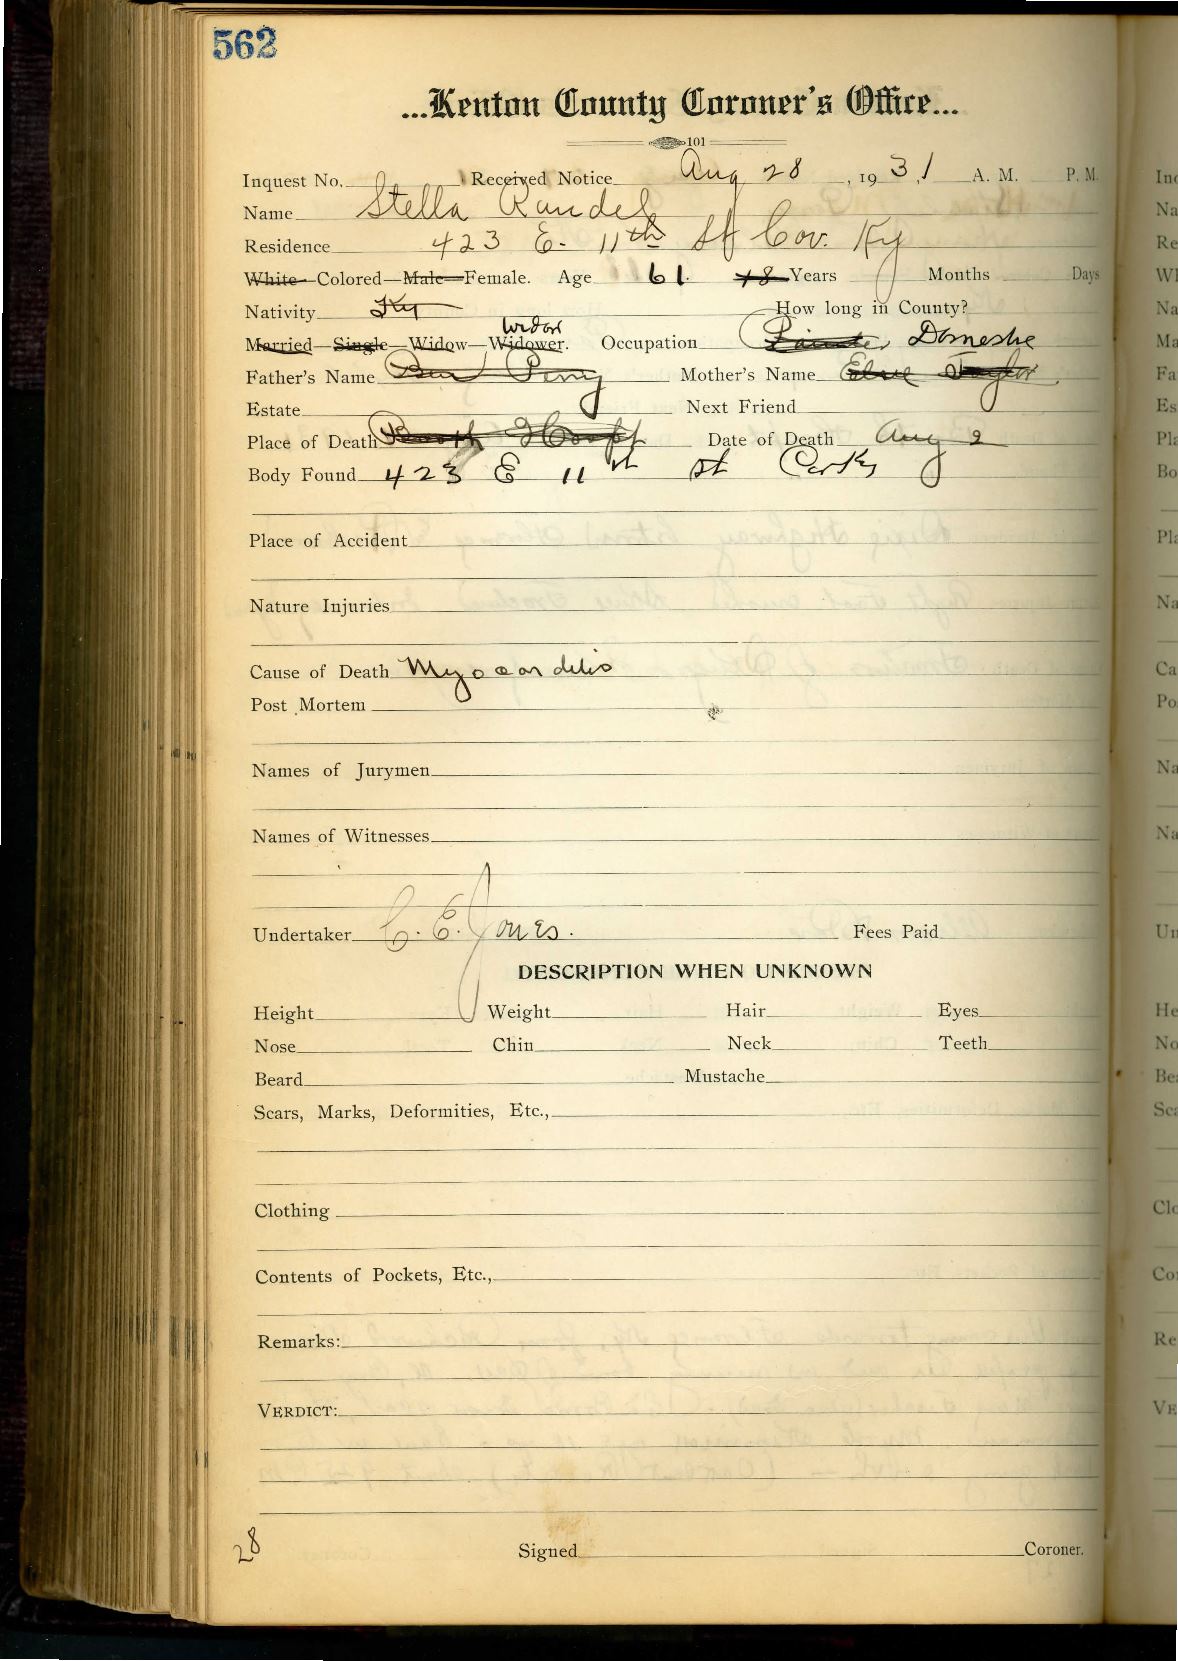 562
...Kenton County Coroner's Office...
101
Inquest No. Received Notice Aug 28, 1931 A. M. P. M.
Name Stella Randel
Residence 423 E. 11th St Cov. Ky
White—Colored—Male—Female. Age 61 48 Years Months Days
Nativity Ky How long in County?
widow
Married—Single—Widow—Widower. Occupation Painter Domestic
Father's Name Ben Perry Mother's Name Taylor
Estate Next Friend
Place of Death Booth Hospt Date of Death Aug 2
Body Found 423 E 11th St
Place of Accident
Nature Injuries
Cause of Death Myocarditis
Post Mortem
Names of Jurymen
Names of Witnesses
Undertaker C. E. Jones. Fees Paid
DESCRIPTION WHEN UNKNOWN
Height Weight Hair Eyes
Nose Chin Neck Teeth
Beard Mustache
Scars, Marks, Deformities, Etc.,
Clothing
Contents of Pockets, Etc.,
Remarks:
VERDICT:
28
Signed Coroner.